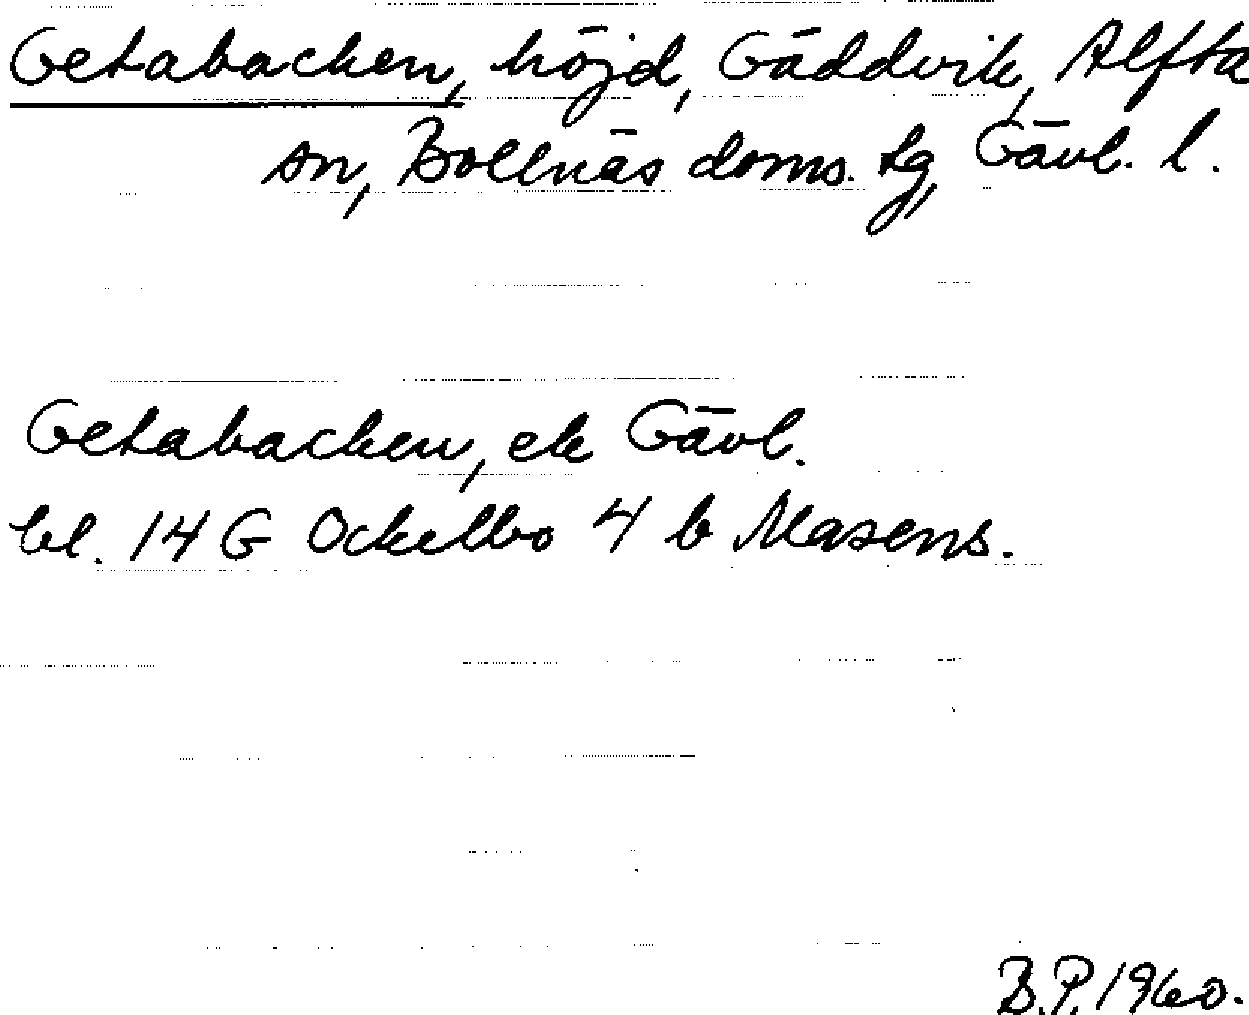 Getabacken, höjd, Gäddvik, Alfta
sn, Bollnäs doms. tg, Gävl. l.
Getabacken, ek Gävl.
bl. 14 G Ockelbo 4 b Masens.
B.P. 1960.